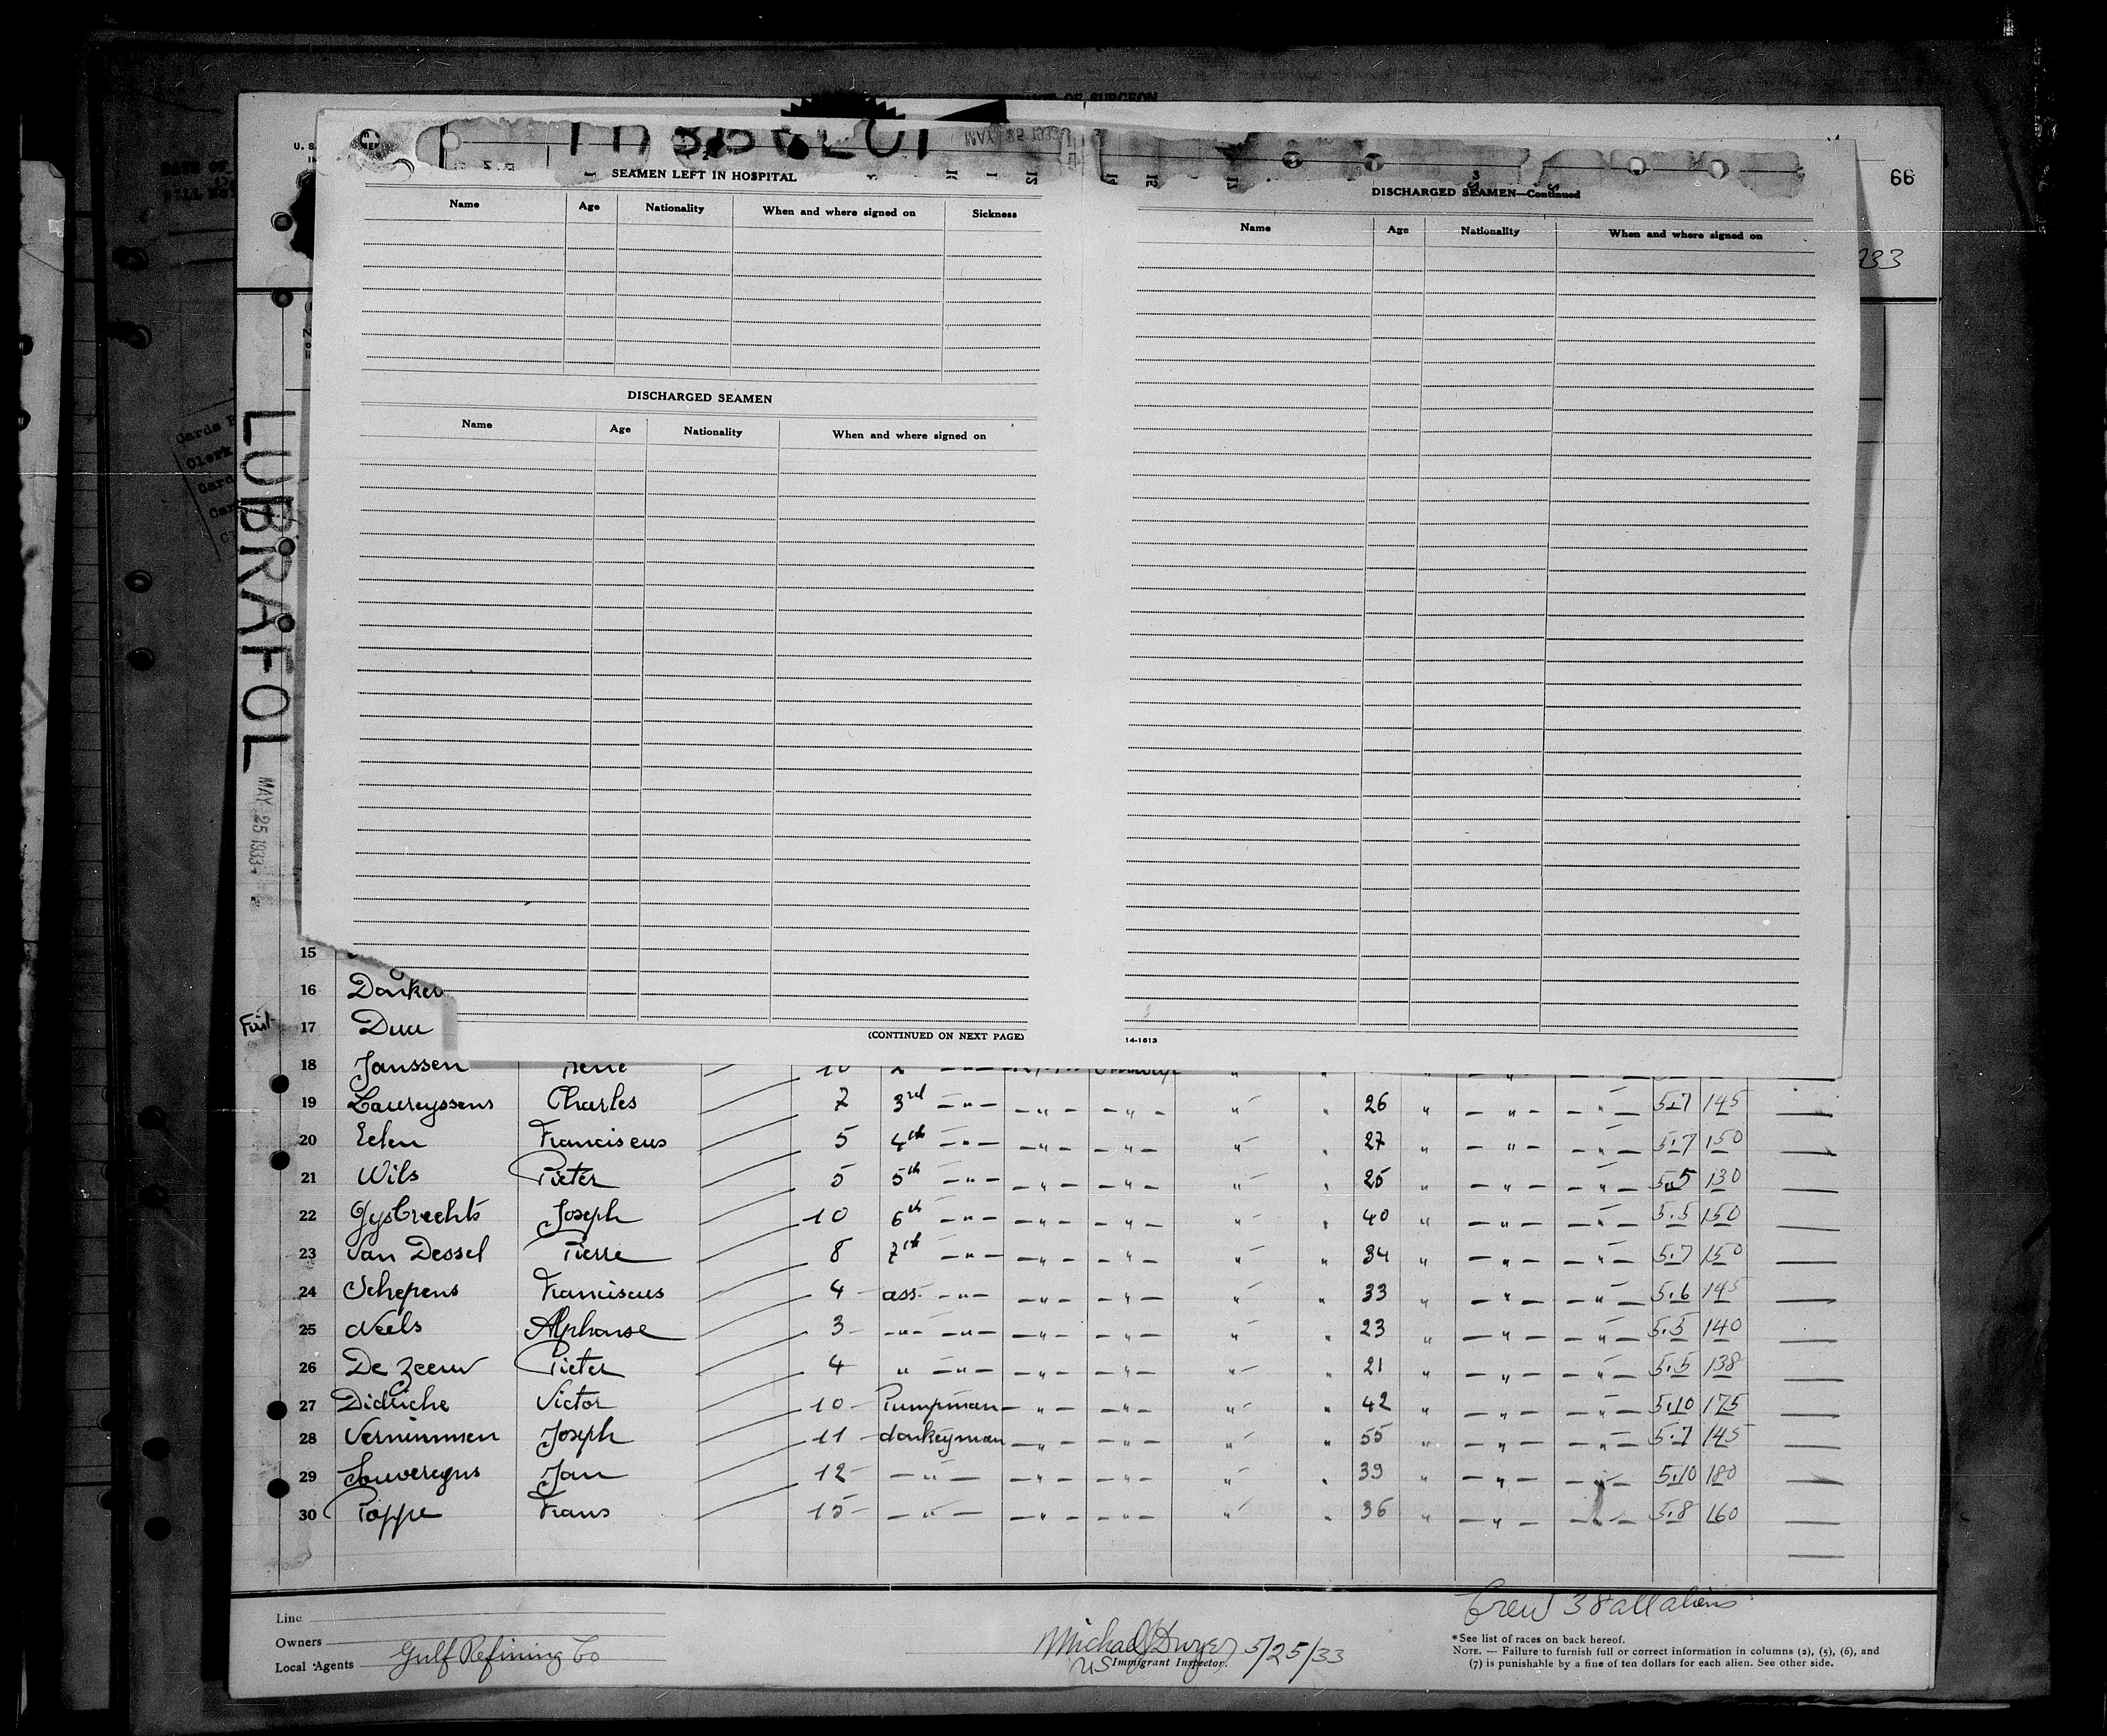 66
SEAMEN LEFT IN HOSPITAL
Name Age Nationality When and where signed on Sickness
DISCHARGED SEAMEN
Name Age Nationality When and where signed on
(CONTINUED ON NEXT PAGE)
3
DISCHARGED SEAMEN—Continued
Name Age Nationality When and where signed on
14-1613
MAY 25 1933
LUBRAFOL
MAY 25 1933
15
16 Donker
First 17
18 Janssen
19 Laureyssens Charles 7 3rd —"— —"— —"— " " 26 " —"— —"— 5.7 145 —
20 Eelen Franciscus 5 4th —"— —"— —"— " " 27 " —"— —"— 5.7 150 —
21 Wils Pieter 5 5th —"— —"— —"— " " 25 " —"— —"— 5.5 130 —
22 Gysbrechts Joseph 10 6th —"— —"— —"— " " 40 " —"— —"— 5.5 150 —
23 Van Dessel Pierre 8 7th —"— —"— —"— " " 34 " —"— —"— 5.7 150 —
24 Schepens Franciscus 4 ass. —"— —"— —"— " " 33 " —"— —"— 5.6 145 —
25 Neels Alphonse 3 —"— —"— —"— —"— " " 23 " —"— —"— 5.5 140 —
26 De Zeeuw Pieter 4 " —"— —"— —"— " " 21 " —"— —"— 5.5 138 —
27 Victor 10 Pumpman —"— —"— " " 42 " —"— —"— 5.10 175 —
28 Vernimmen Joseph 11 donkeyman —"— —"— " " 55 " —"— —"— 5.7 145 —
29 Souvereyns Jan 12 —"— —"— —"— " " 39 " —"— —"— 5.10 180 —
30 Poppe Frans 15 —"— —"— —"— " " 36 " —"— —"— 5.8 160 —
Crew 38 all aliens
Line
Owners
Local Agents Gulf Refining Co
Michael Dwyer 5/25/33
US Immigrant Inspector.
*See list of races on back hereof.
NOTE. — Failure to furnish full or correct information in columns (2), (5), (6), and
(7) is punishable by a fine of ten dollars for each alien. See other side.